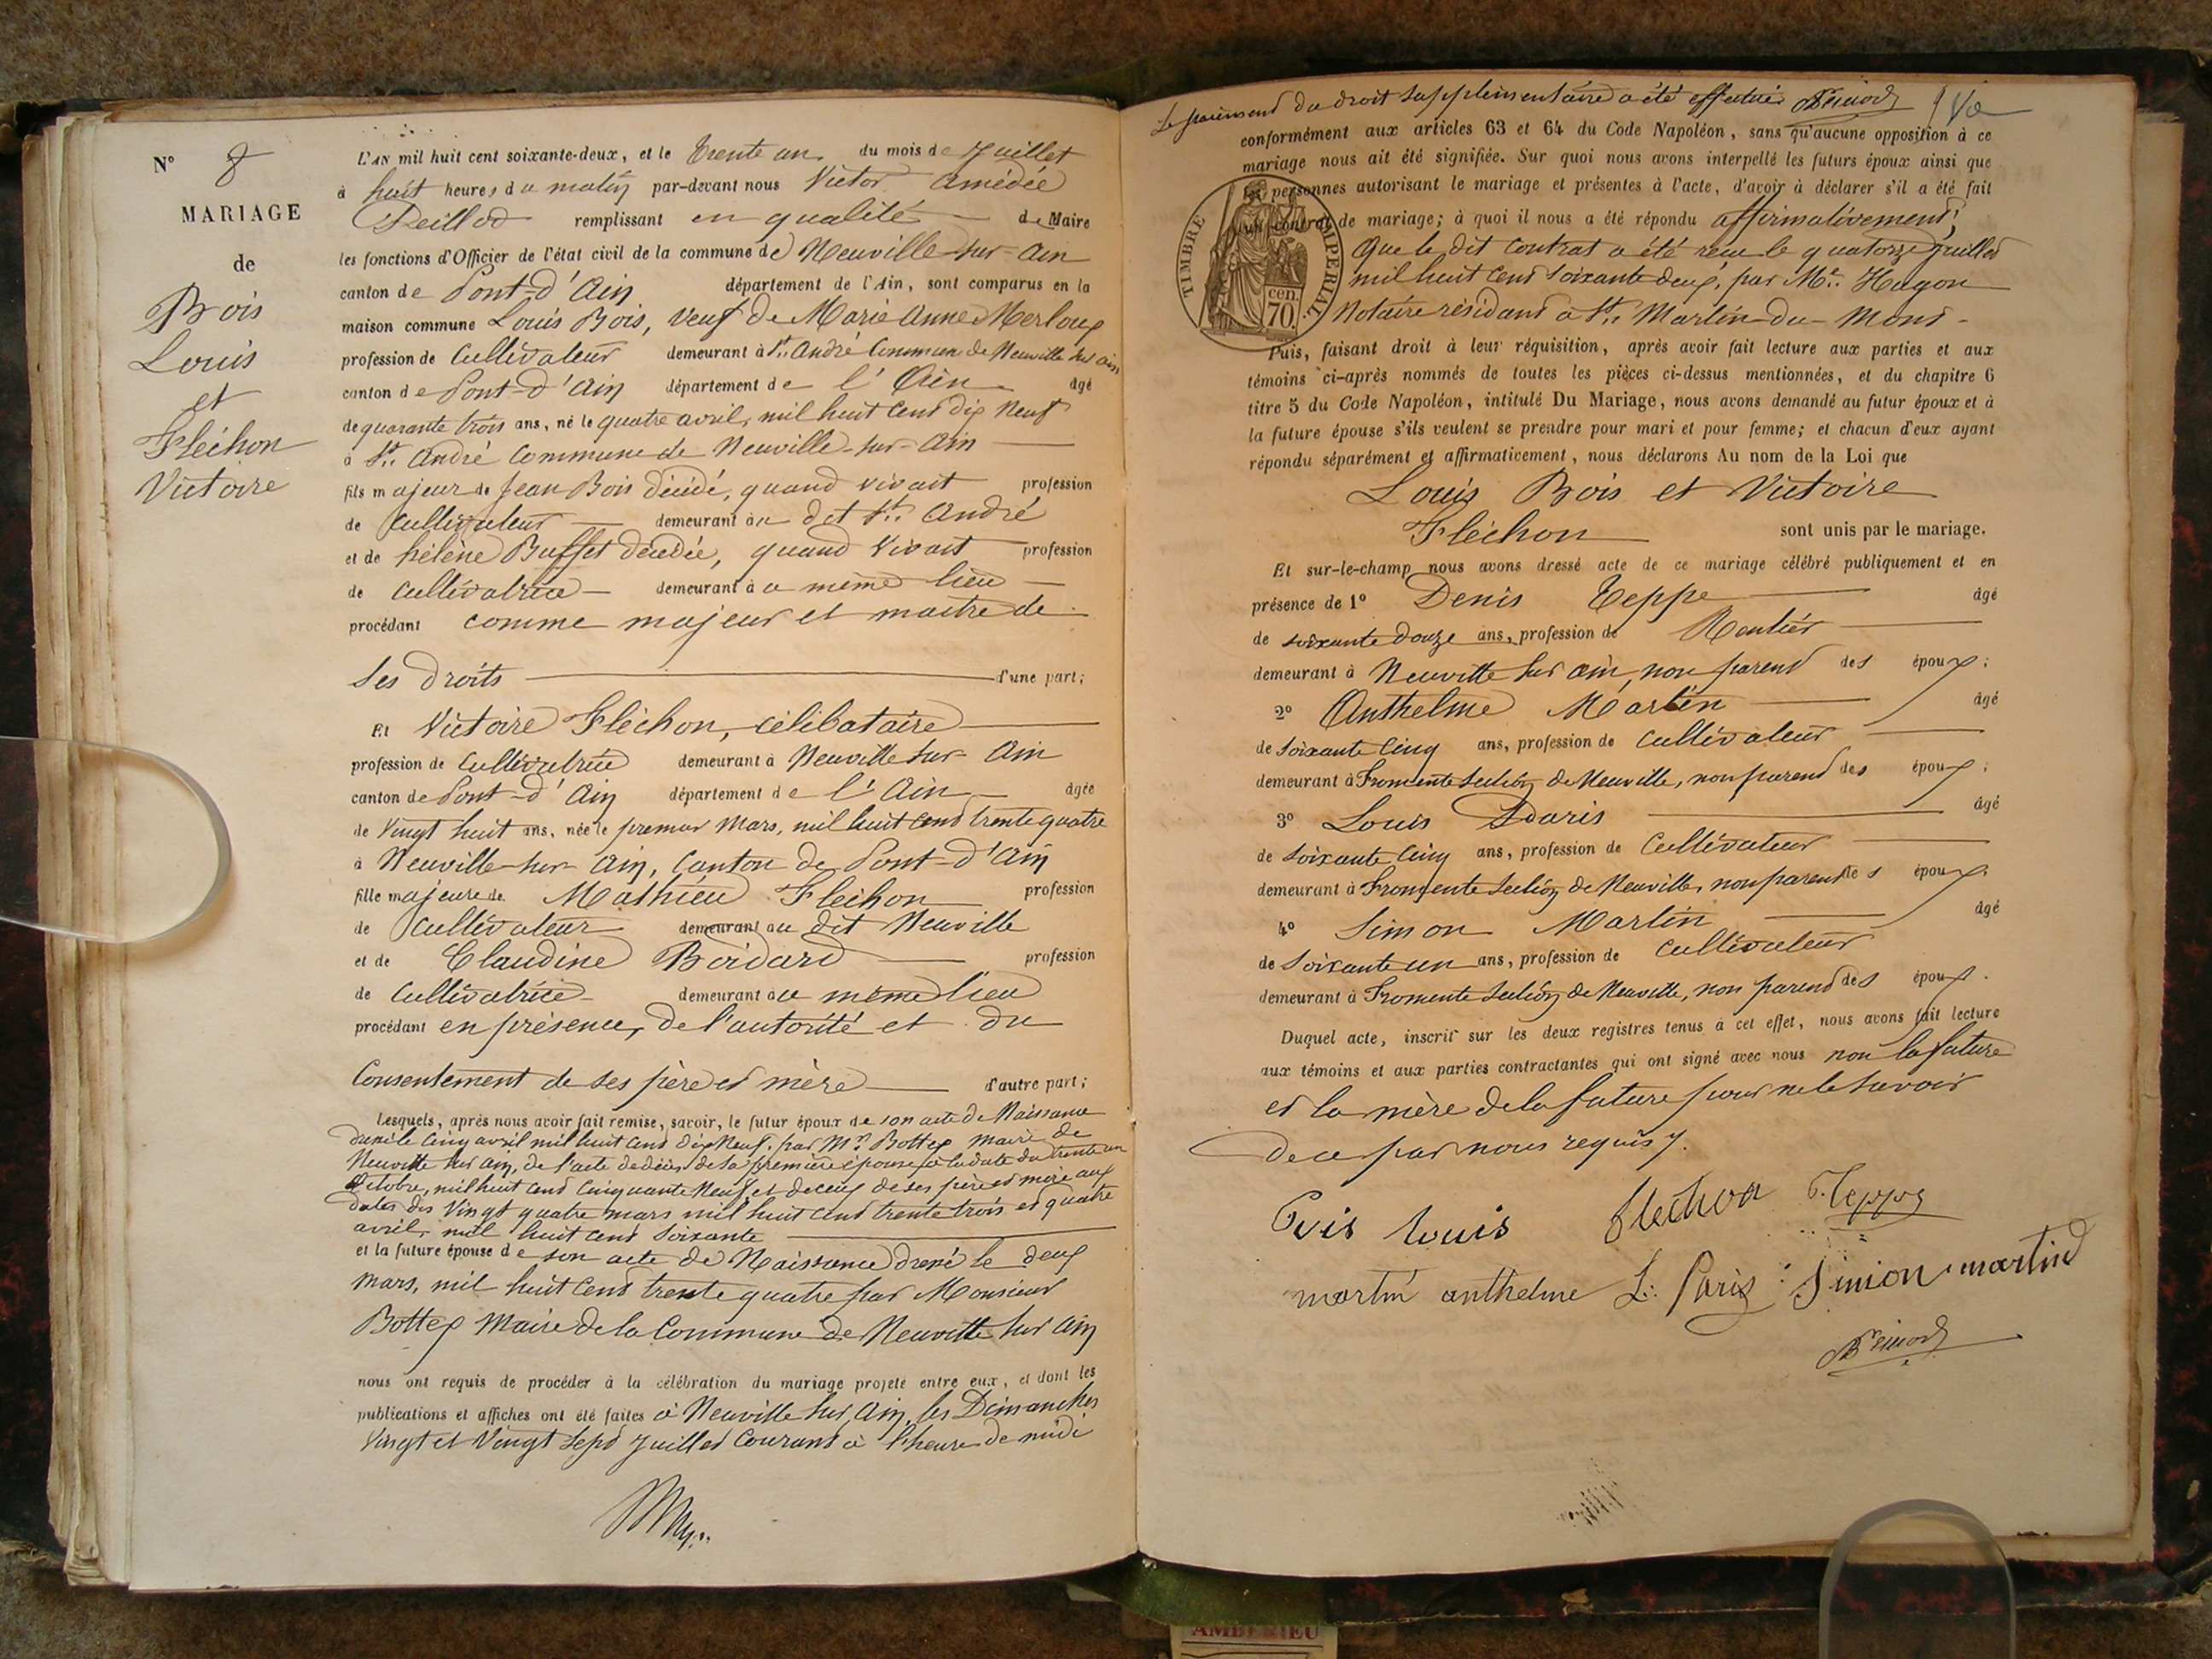 N° 8
MARIAGE
de
Bois
Louis
et
Fléchon
Victoire
L'AN mil huit cent soixante-deux, et le trente un du mois de Juillet
à huit heures du matin par-devant nous Victor Amédée
remplissant en qualité de Maire
les fonctions d'Officier de l'état civil de la commune de Neuville-sur-Ain
canton de Pont-d'Ain département de l'Ain, sont comparus en la
maison commune Louis Bois, veuf de Marie Anne Merloux
profession de Cultivateur demeurant à St. André Commune de Neuville sur Ain
canton de Pont-d'Ain département de l'Ain âgé
de quarante trois ans, né le quatre avril, mil huit cent dix neuf
à St. André Commune de Neuville-sur-Ain
fils majeur de Jean Bois décédé, quand vivait profession
de Cultivateur demeurant au dit St. André
et de hélène Buffet décédée, quand vivait profession
de Cultivatrice demeurant au même lieu
procédant comme majeur et maitre de
ses droits d'une part;
Et Victoire Fléchon, célibataire
profession de Cultivatrice demeurant à Neuville sur Ain
canton de Pont-d'Ain département de l'Ain âgée
de vingt huit ans, née le premier Mars, mil huit cent trente quatre
à Neuville-sur-Ain, Canton de Pont-d'Ain
fille majeure de Mathieu Fléchon profession
de Cultivateur demeurant au dit Neuville
et de Claudine Boidard profession
de Cultivatrice demeurant au même lieu
procédant en présence, de l'autorité et du
Consentement de ses père et mère d'autre part;
Lesquels, après nous avoir fait remise, savoir, le futur époux de son acte de Naissance
dressé le cinq avril mil huit cent dix neuf, par Mr. Bottex maire de
Neuville sur Ain, de l'acte de décès de sa première épouse à la date du trente un
Octobre, mil huit cent cinquante neuf, et de ceux de ses père et mère aux
dates des vingt quatre mars mil huit cent trente trois et quatre
avril, mil huit cent soixante
et la future épouse de son acte de Naissance dressé le deux
mars, mil huit cent trente quatre par Monsieur
Bottex Maire de la Commune de Neuville sur Ain
nous ont requis de procéder à la célébration du mariage projeté entre eux, et dont les
publications et affiches ont été faites à Neuville sur Ain, les Dimanches
vingt et vingt sept Juillet Courant à l'heure de midi
Le paiement du droit supplémentaire a été effectué
conformément aux articles 63 et 64 du Code Napoléon, sans qu'aucune opposition à ce
mariage nous ait été signifiée. Sur quoi nous avons interpellé les futurs époux ainsi que
les personnes autorisant le mariage et présentes à l'acte, d'avoir à déclarer s'il a été fait
un contrat de mariage; à quoi il nous a été répondu affirmativement;
TIMBRE IMPERIAL
70 cen.
Que le dit Contrat a été reçu le quatorze Juillet
mil huit cent soixante deux, par Me. Hugon
Notaire résidant à St. Martin-du-Mont-
Puis, faisant droit à leur réquisition, après avoir fait lecture aux parties et aux
témoins ci-après nommés de toutes les pièces ci-dessus mentionnées, et du chapitre 6
titre 5 du Code Napoléon, intitulé Du Mariage, nous avons demandé au futur époux et à
la future épouse s'ils veulent se prendre pour mari et pour femme; et chacun d'eux ayant
répondu séparément et affirmativement, nous déclarons Au nom de la Loi que
Louis Bois et Victoire
Fléchon sont unis par le mariage.
Et sur-le-champ nous avons dressé acte de ce mariage célébré publiquement et en
présence de 1° Denis Teppe âgé
de soixante douze ans, profession de Rentier
demeurant à Neuville sur Ain, non parent des époux;
2° Anthelme Martin âgé
de soixante Cinq ans, profession de Cultivateur
demeurant à Fromente section de Neuville, non parent des époux;
3° Louis Paris âgé
de soixante Cinq ans, profession de Cultivateur
demeurant à Fromente section de Neuville, non parent des époux;
4° Simon Martin âgé
de soixante un ans, profession de Cultivateur
demeurant à Fromente section de Neuville, non parent des époux.
Duquel acte, inscrit sur les deux registres tenus à cet effet, nous avons fait lecture
aux témoins et aux parties contractantes qui ont signé avec nous non la future
et la mère de la future pour ne le savoir
de ce par nous requis
Bois Louis Flechon Teppe
martin anthelme L. Paris Simon martin
AMBERIEU